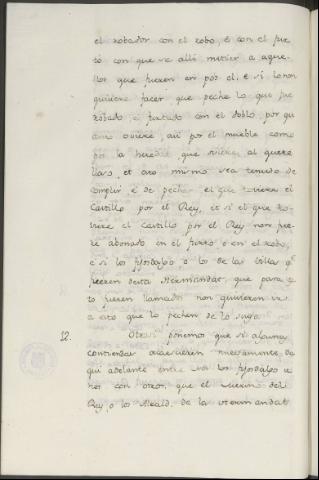 el robador con el robo, é con el fur
to con que se alli metier a aque-
llos que fueren en pos el: e si lo non
quisiere facer que peche lo que fue
robado, e furtado con el doblo, por qu
anto oviere, asi por el mueble como
por la heredat que oviere al quere
lloso, et esto mismo sea tenudo de
complir, e de pechar el que toviere el
Castillo por el Rey, et si el que to-
viere el Castillo por el Rey non fue-
re abonado en el furto o en el robo,
e si los fijosdalgo o los de las villas q.e
fueren desta Hermandat, que para es
to fueren llamados non quisieren ir
a esto que lo pechen de lo suyo.
12. Otrosi ponemos que si algunas
contiendas acaescieren nuevamente de
qui adelante entre los fijosdalgo u
nos con otros, que el merino del
Rey, o los Alcald. de la Hermandat